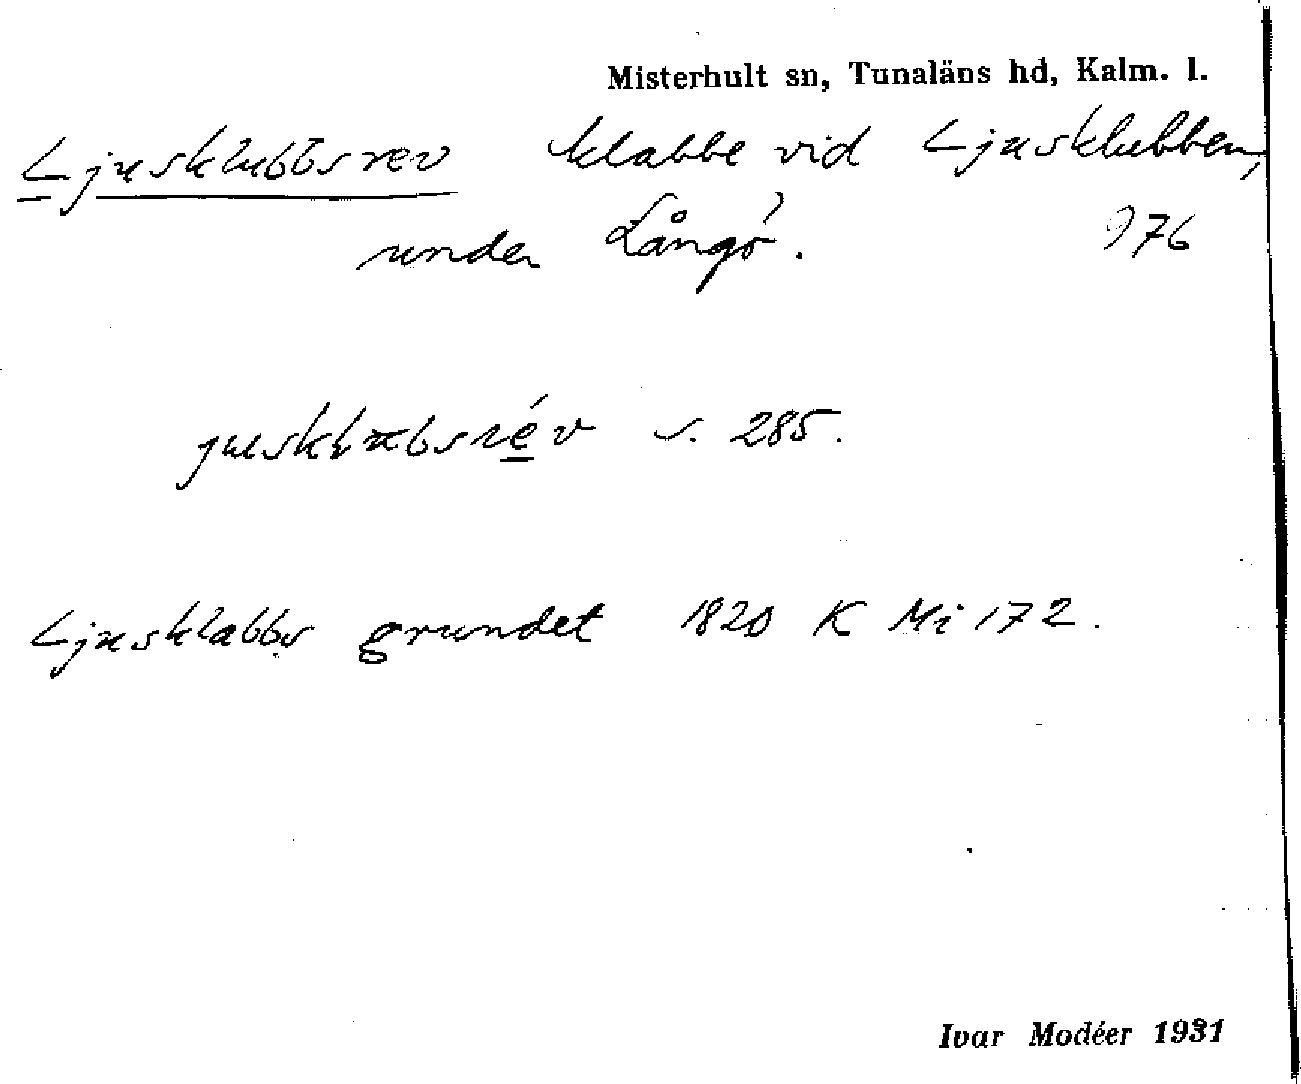 Misterhult sn, Tunaläns hd, Kalm. l.
Ljusklubbsrev klabbe vid Ljusklubben,
under Långö. 976
s. 285.
Ljusklabbs grundet 1820 K Mi 172.
Ivar Modéer 1931